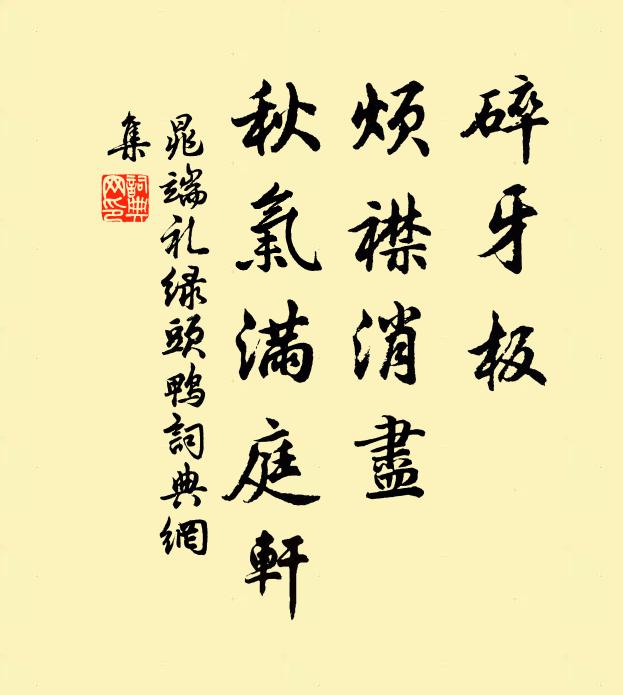 碎牙板
煩襟消盡
秋氣滿庭軒
晁端礼绿頭鴨詞典網
集
詞典
网印